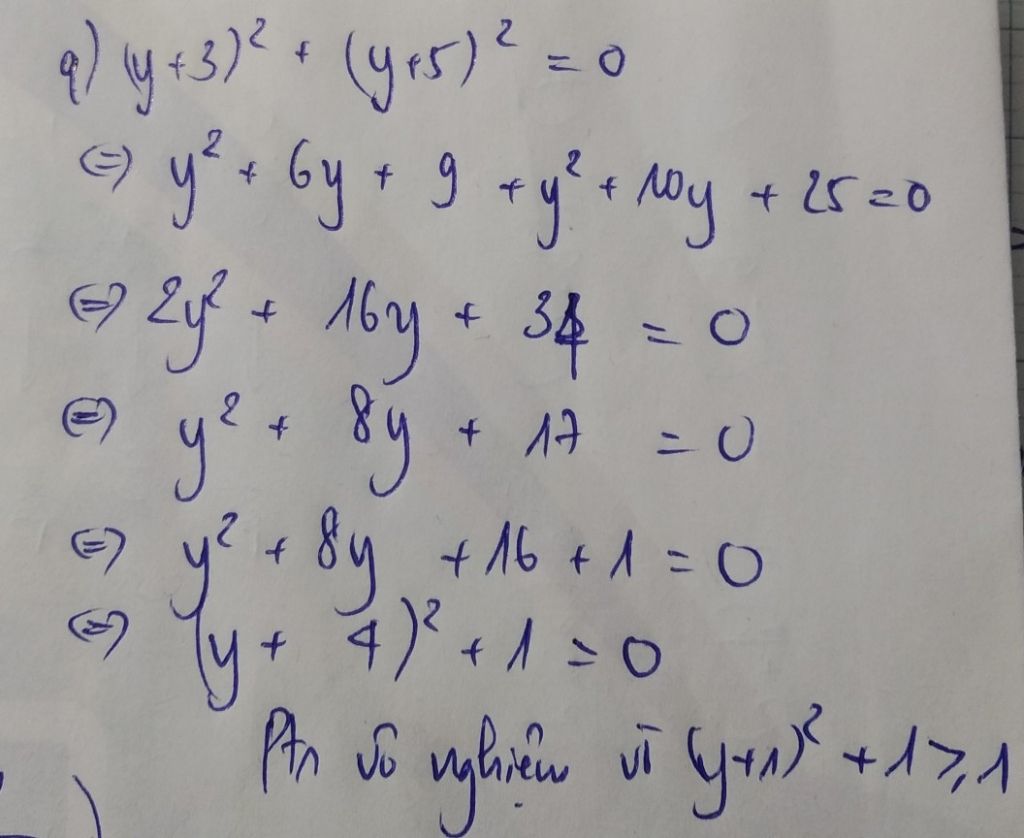 q) (y+3)² + (y+5)² = 0
⇔ y² + 6y + 9 + y² + 10y + 25 = 0
⇔ 2y² + 16y + 34 = 0
⇔ y² + 8y + 17 = 0
⇔ y² + 8y + 16 + 1 = 0
⇔ (y + 4)² + 1 = 0
Ptr vô nghiệm vì (y+1)² + 1 ≥ 1